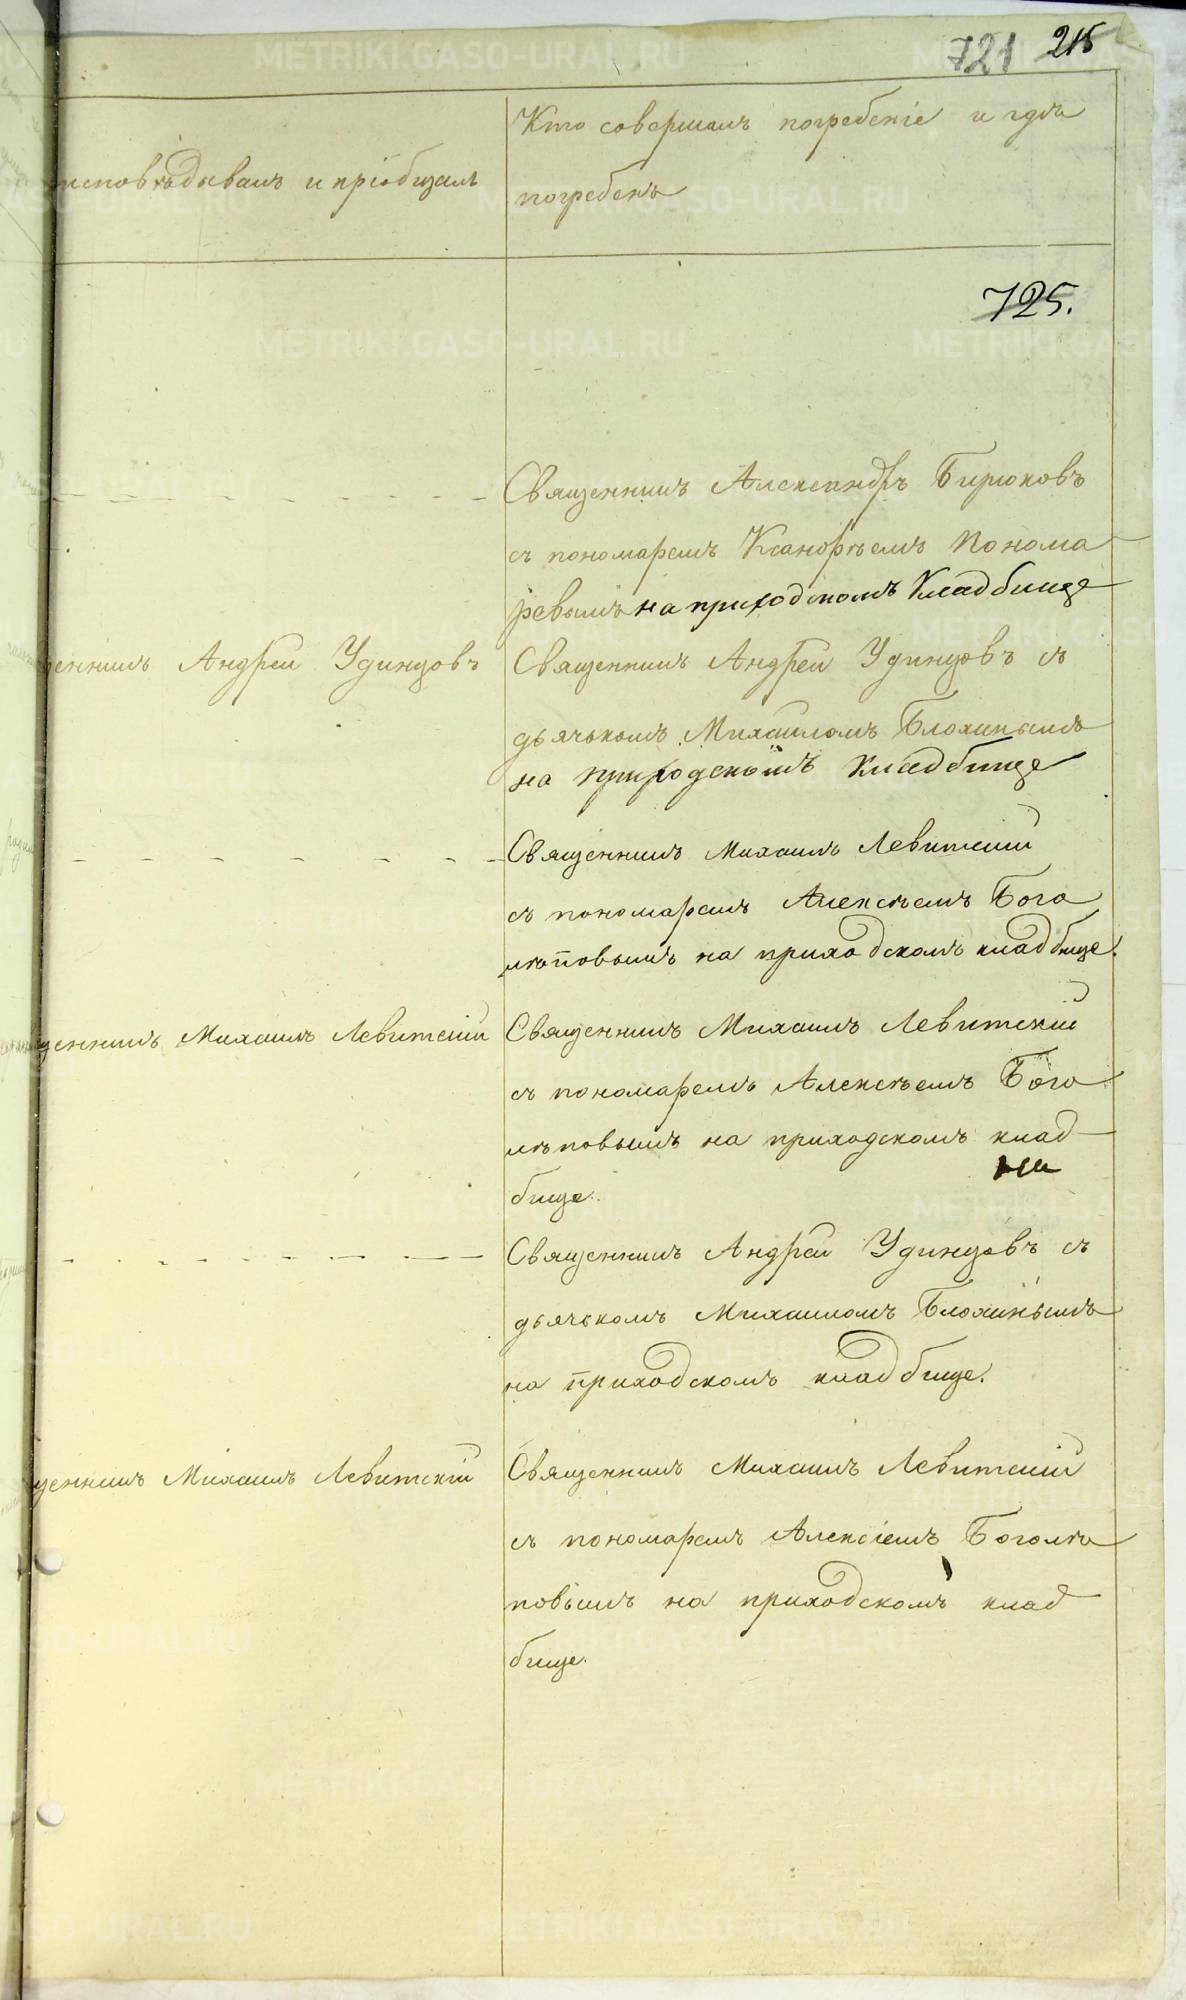 721 215
Кто совершалъ погребенiе и гдѣ
исповѣдывалъ и прiобщалъ
погребенъ
725.
Священникъ Александръ Бирюковъ
съ пономаремъ Ксанорѣемъ Понома
ревымъ на приходскомъ Кладбище
щенникъ Андрей Удинцовъ
Священникъ Андрей Удинцовъ съ
дьячькомъ Михаиломъ Блохинымъ
на приходскомъ кладбище
Священникъ Михаилъ Левитскiй
съ пономаремъ Алексѣемъ Бого
лѣповымъ на приходскомъ кладбище.
щенникъ Михаилъ Левитскiй
Священникъ Михаилъ Левитскiй
съ пономаремъ Алексѣемъ Бого
лѣповымъ на приходскомъ клад
бище.
Священникъ Андрей Удинцовъ съ
дьячькомъ Михаиломъ Блохинымъ
на приходскомъ кладбище.
щенникъ Михаилъ Левитскiй
Священникъ Михаилъ Левитскiй
съ пономаремъ Алексiемъ Боголѣ
повымъ на приходскомъ клад
бище.
METRIKI.GASO-URAL.RU